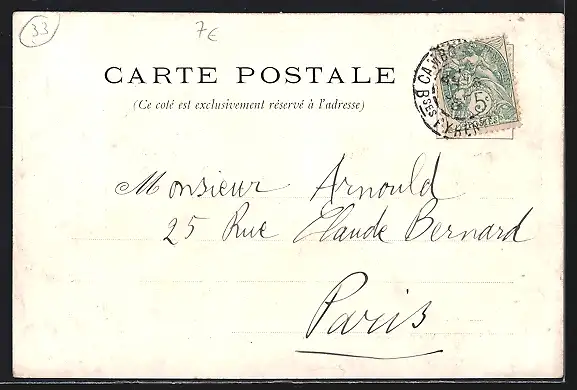 33
7€
CARTE POSTALE
(Ce coté est exclusivement réservé à l'adresse)
CAMBO
BSES PYRENEES
5c
Monsieur Arnould
25 Rue Claude Bernard
Paris